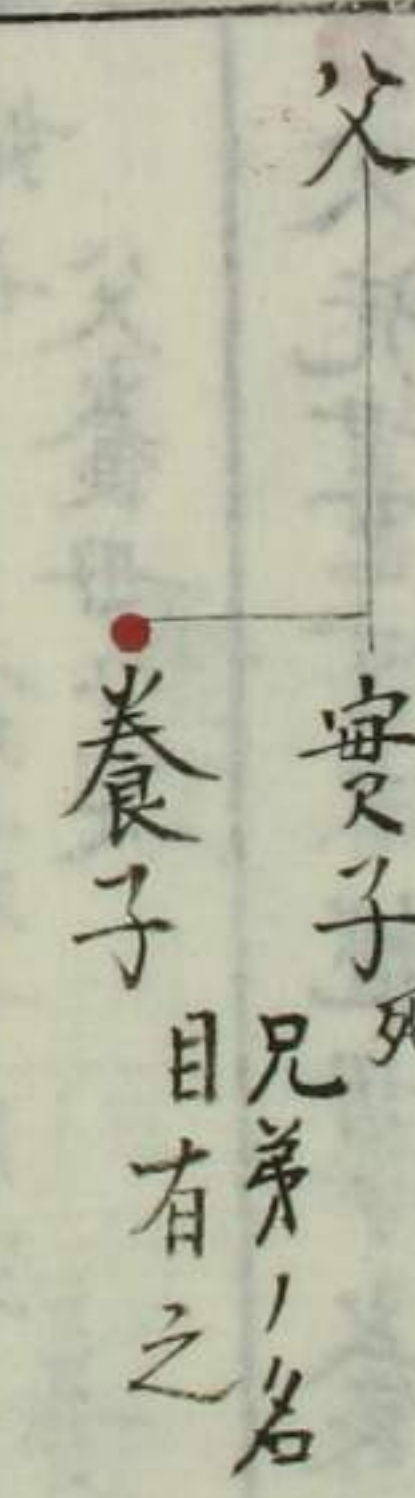 父
實子 死
養子
兄弟ノ名
目有之